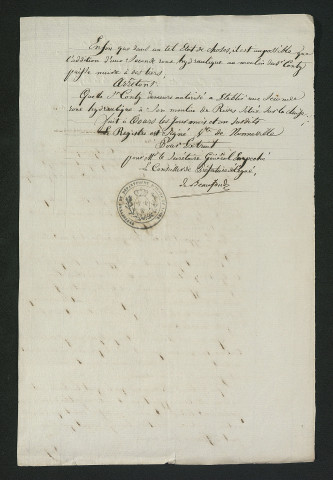 Enfin que dans un tel état de choses, il est impossible que
l'addition d'une seconde roue hydraulique au moulin du Sr Conty
puisse nuire à des tiers.
Arrêtons
Que le Sr Conty demeure autorisé à établir une seconde
roue hydraulique à son moulin de situé sur la
fait à Tours les jour mois et an susdits
Le Registre est signé de
Pour Extrait
pour Mr le Secrétaire Général empêché
Le Conseiller de Préfecture délégué,
de Beaufond